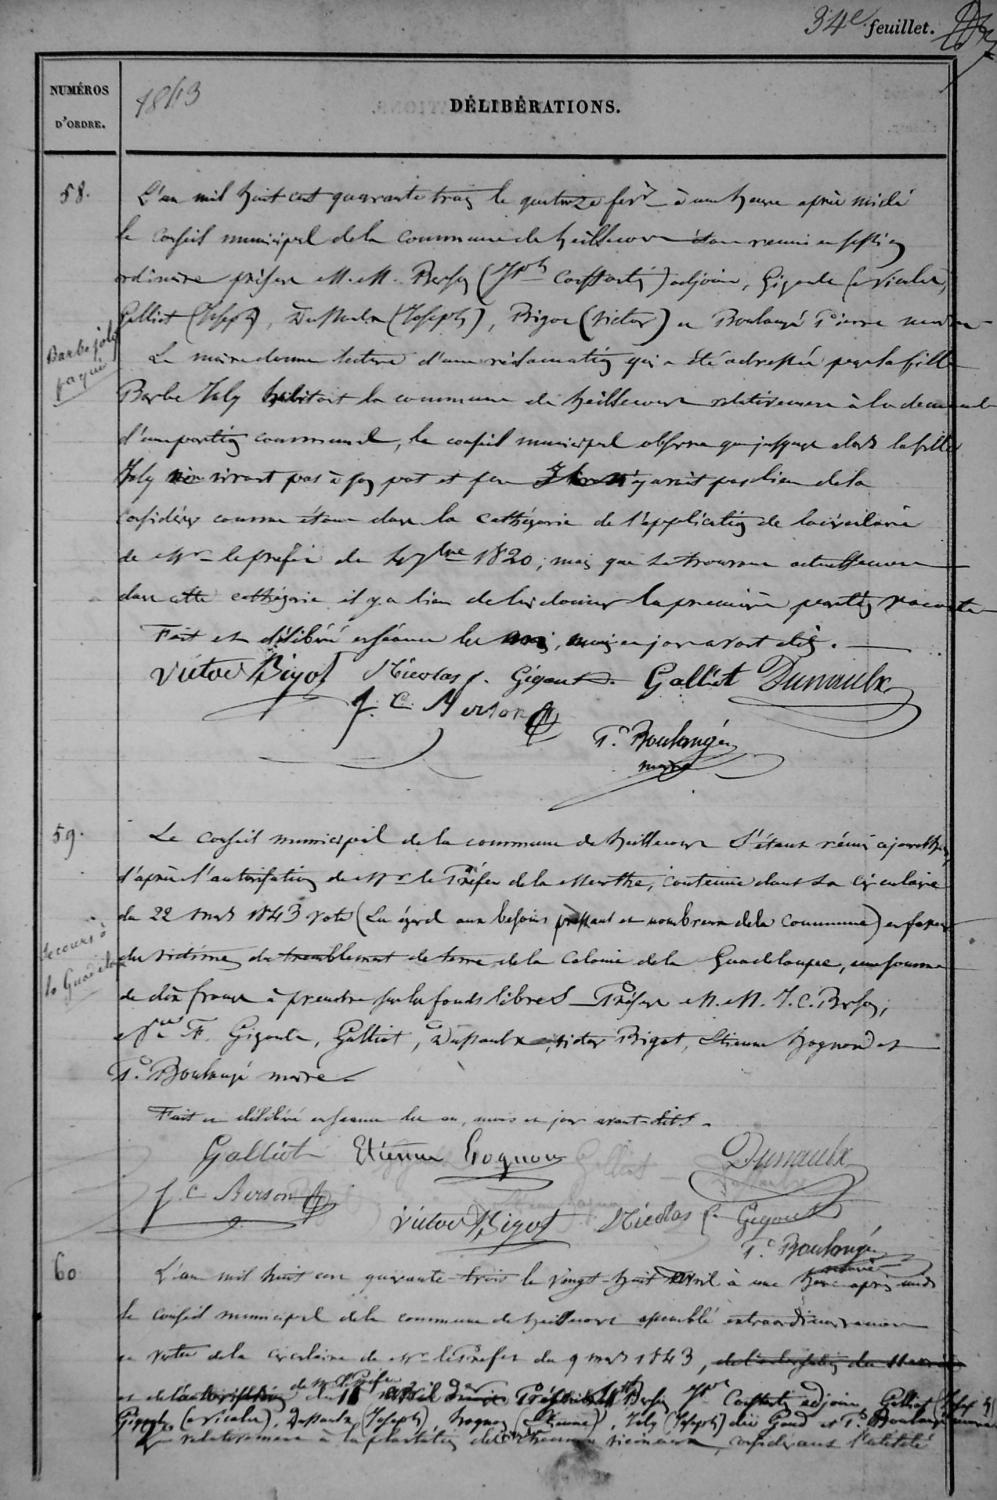 34e feuillet.
NUMÉROS D'ORDRE.
1843
DÉLIBÉRATIONS.
58.
L'an mil huit cent quarante trois le quatorze fevr à une heure après midi
le Conseil municipal de la commune de heillecourt étant réuni en session
ordinaire présens M.M. Berson (Jph Constantin) adjoint, Gigout (Nicolas),
Galliot (Joseph), Dussaulx (Joseph), Bigot (Victor) et Boulangé Pierre maire
Barbe Joly
Le maire donne lecture d'une réclamation qui a été adressée par la fille
Barbe Joly habitant la commune de heillecourt relativement à la demande
d'une portion communal, le conseil municipal observe que jusque alors la fille
Joly ne vivant pas à son pot et feu il n'y avait pas lieu de la
considérer comme étant dans la cathégorie de l'application de la circulaire
de Mr le préfet du 4 7bre 1820; mais que se trouvant actuellement
dans cette cathégorie il y a lieu de lui donner la première portion vacante
Fait et délibéré en séance les mois et jour avant dits.
Victor Bigot Nicolas f. Gigout Galliot Dussaulx
J. C. Berson
P. Boulangé
maire
59.
Le Conseil municipal de la commune de heillecourt s'étant réuni aujourd'hui
d'après l'autorisation de Mr le Préfet de la Meurthe, contenue dans sa circulaire
du 22 mars 1843 vote (Eu égard aux besoins pressant et nombreux de la commune) en faveur
Secours à
la Guadeloupe
des victimes du tremblement de terre de la Colonie de la Guadeloupe, une somme
de dix francs à prendre sur les fonds libres Présens M.M. J.C. Berson,
F. Gigout, Galliot, Dussaulx, victor Bigot, Etienne hognon et
P. Boulangé maire
Fait et délibéré en séance les an, mois et jour avant dits.
Galliot Etienne hognon Dussaulx
J. C. Berson
Victor Bigot Nicolas f. Gigout
P. Boulangé
maire
60
L'an mil huit cent quarante-trois le vingt-huit avril à une heure après midi
le conseil municipal de la commune de heillecourt assemblé extraordinairement
en vertu de la circulaire de Mr le Préfet du 9 mars 1843,
et de l'autorisation de Mr le Préfet du avril Présens Berson Jph Constantin adjoint, Galliot (Joseph)
Gigout (Nicolas), Dussaulx (Joseph), hognon (Etienne), Joly (Joseph) dit Gand et P. Boulangé maire
relativement à la plantation des chemins vicinaux, considérant l'utilité